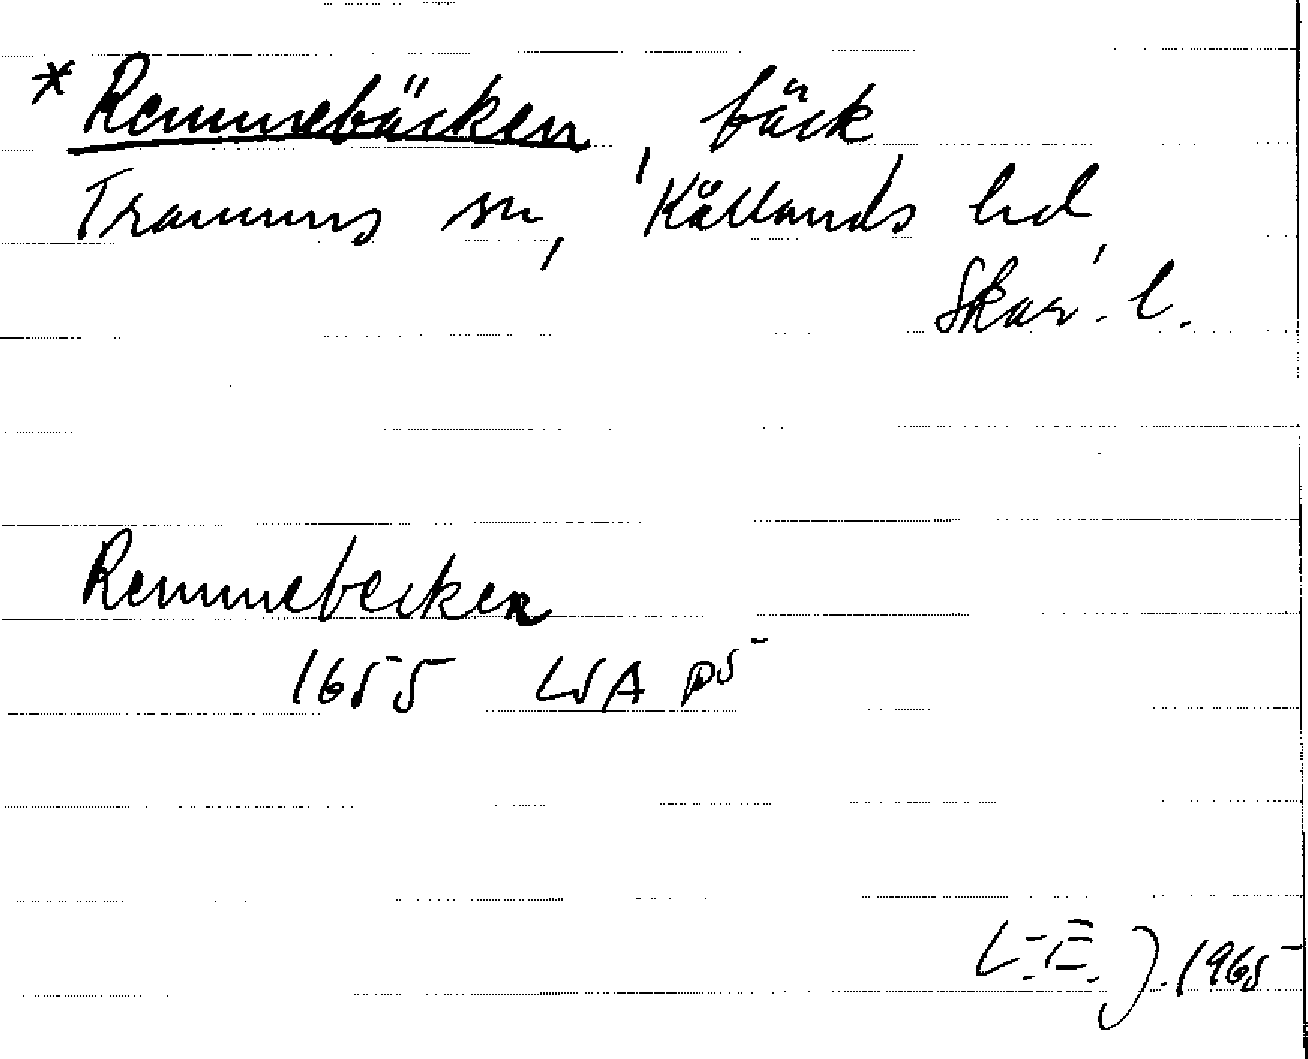 * Remmebäcken, bäck
Tranums sn, Kållands hd,
Skar. l.
Remmebecken
1655 LSA P5
L.-E. J. 1965